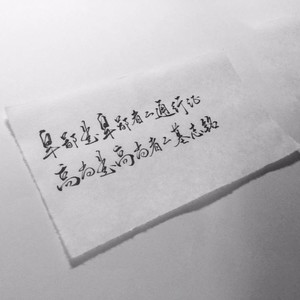 卑鄙是卑鄙者之通行证
高尚是高尚者之墓志铭